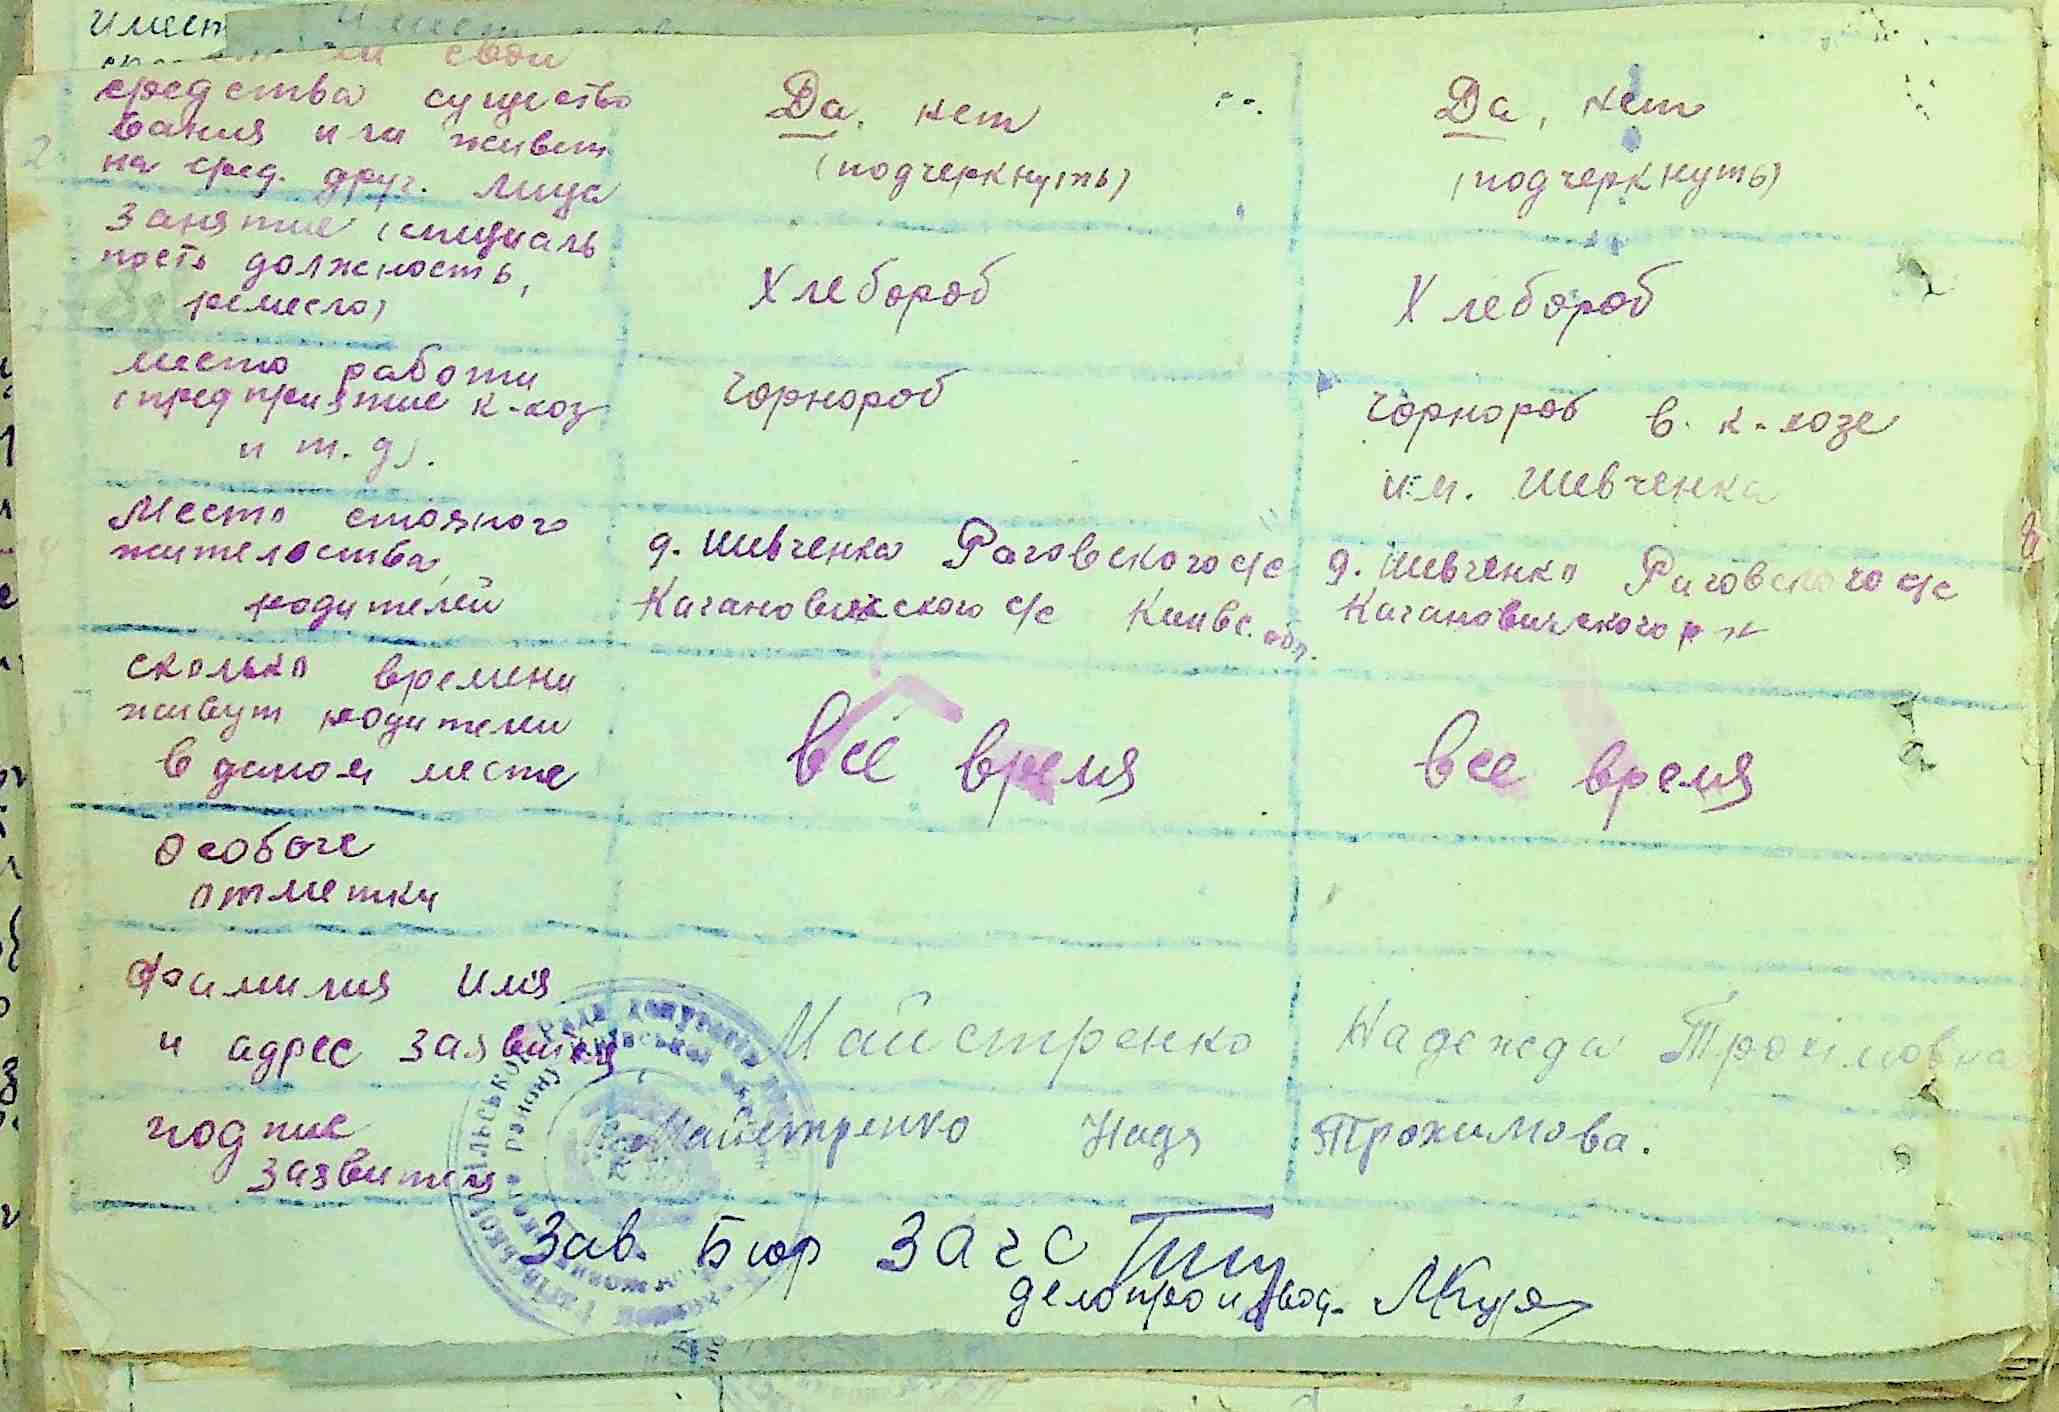 имеет
свои
средства существо
вания или живет
на сред. друг. лица
Да, нет
(подчеркнуть)
Да, нет
(подчеркнуть)
Занятие (специаль
ность должность,
ремесло)
Хлебороб
Хлебороб
место работи
(предприятие к-хоз
и т.д).
Чорнороб
Чорнороб в к-хозе
им. Шевченка
Место стояного
жителства,
родителей
д. Шевченка Раговского с/с
Кагановического с/с Киевс. обл.
д. Шевченко Раговского с/с
Кагановическогор-н
сколько времени
живут родители
в даном месте
все время
все время
особоге
отметки
Фамилия имя
и адрес заявителя
Майстренко Надежда Трохімовна
подпис
заявителя
Майстренко Надя Трохимова.
Зав. Бюр Загс
делопроизвод.